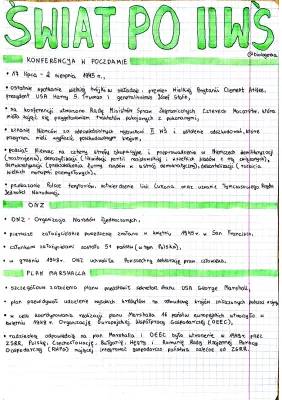 ŚWIAT PO II WŚ
KONFERENCJA W POCZDAMIE
• 17 lipca - 2 sierpnia 1945 r.,
• ostatnie spotkanie wielkiej trójki w składzie: premier Wielkiej Brytanii Clement Attlee,
prezydent USA Harry S. Truman i generalissimus Józef Stalin,
• na konferencji utworzono Radę Ministrów Spraw Zagranicznych Czterech Mocarstw, która
miała zająć się przygotowaniem traktatów pokojowych z pokonanymi,
• uznanie Niemców za odpowiedzialnych rozpętania II WŚ i ustalono odszkodowania, które
program miał wypłacić poszkodowanym krajom,
• podział Niemiec na cztery strefy okupacyjne i przeprowadzenie w Niemczech demilitaryzacji
(rozbrojenia), denazyfikacji (likwidacji partii nazistowskiej i wszelkich śladów z nią związanych),
demokratyzacji (przekształcenia ustroju państwa w ustrój demokratyczny), dekartelizacji (rozbicia
wielkich koncernów przemysłowych),
• przekazanie Polsce terytoriów, zatwierdzenie linii Curzona oraz uznanie Tymczasowego Rządu
Jedności Narodowej.
ONZ
• ONZ - Organizacja Narodów Zjednoczonych,
• pierwsze założycielskie posiedzenie zwołano w kwietniu 1945 r. w San Francisco,
• członkami założycielami zostało 51 państw (w tym Polska),
• w grudniu 1948 r. ONZ uchwaliła Powszechną deklarację praw człowieka.
PLAN MARSHALLA
• szczegółowe założenia planu przedstawił sekretarz stanu USA George Marshall,
• plan przewidywał udzielenie wysokich kredytów na odbudowę krajów zniszczonych podczas wojny,
• w celu koordynowania realizacji planu Marshalla 16 państw europejskich utworzyło w
kwietniu 1948 r. Organizację Europejskiej Współpracy Gospodarczej (OEEC),
• radziecką odpowiedzią na plan Marshalla i OEEC było utworzenie w 1949 r. przez
ZSRR, Polskę, Czechosłowację, Bułgarię, Węgry i Rumunię Rady Wzajemnej Pomocy
Gospodarczej (RWPG) mającej integrować gospodarczo państwa zależne od ZSRR.